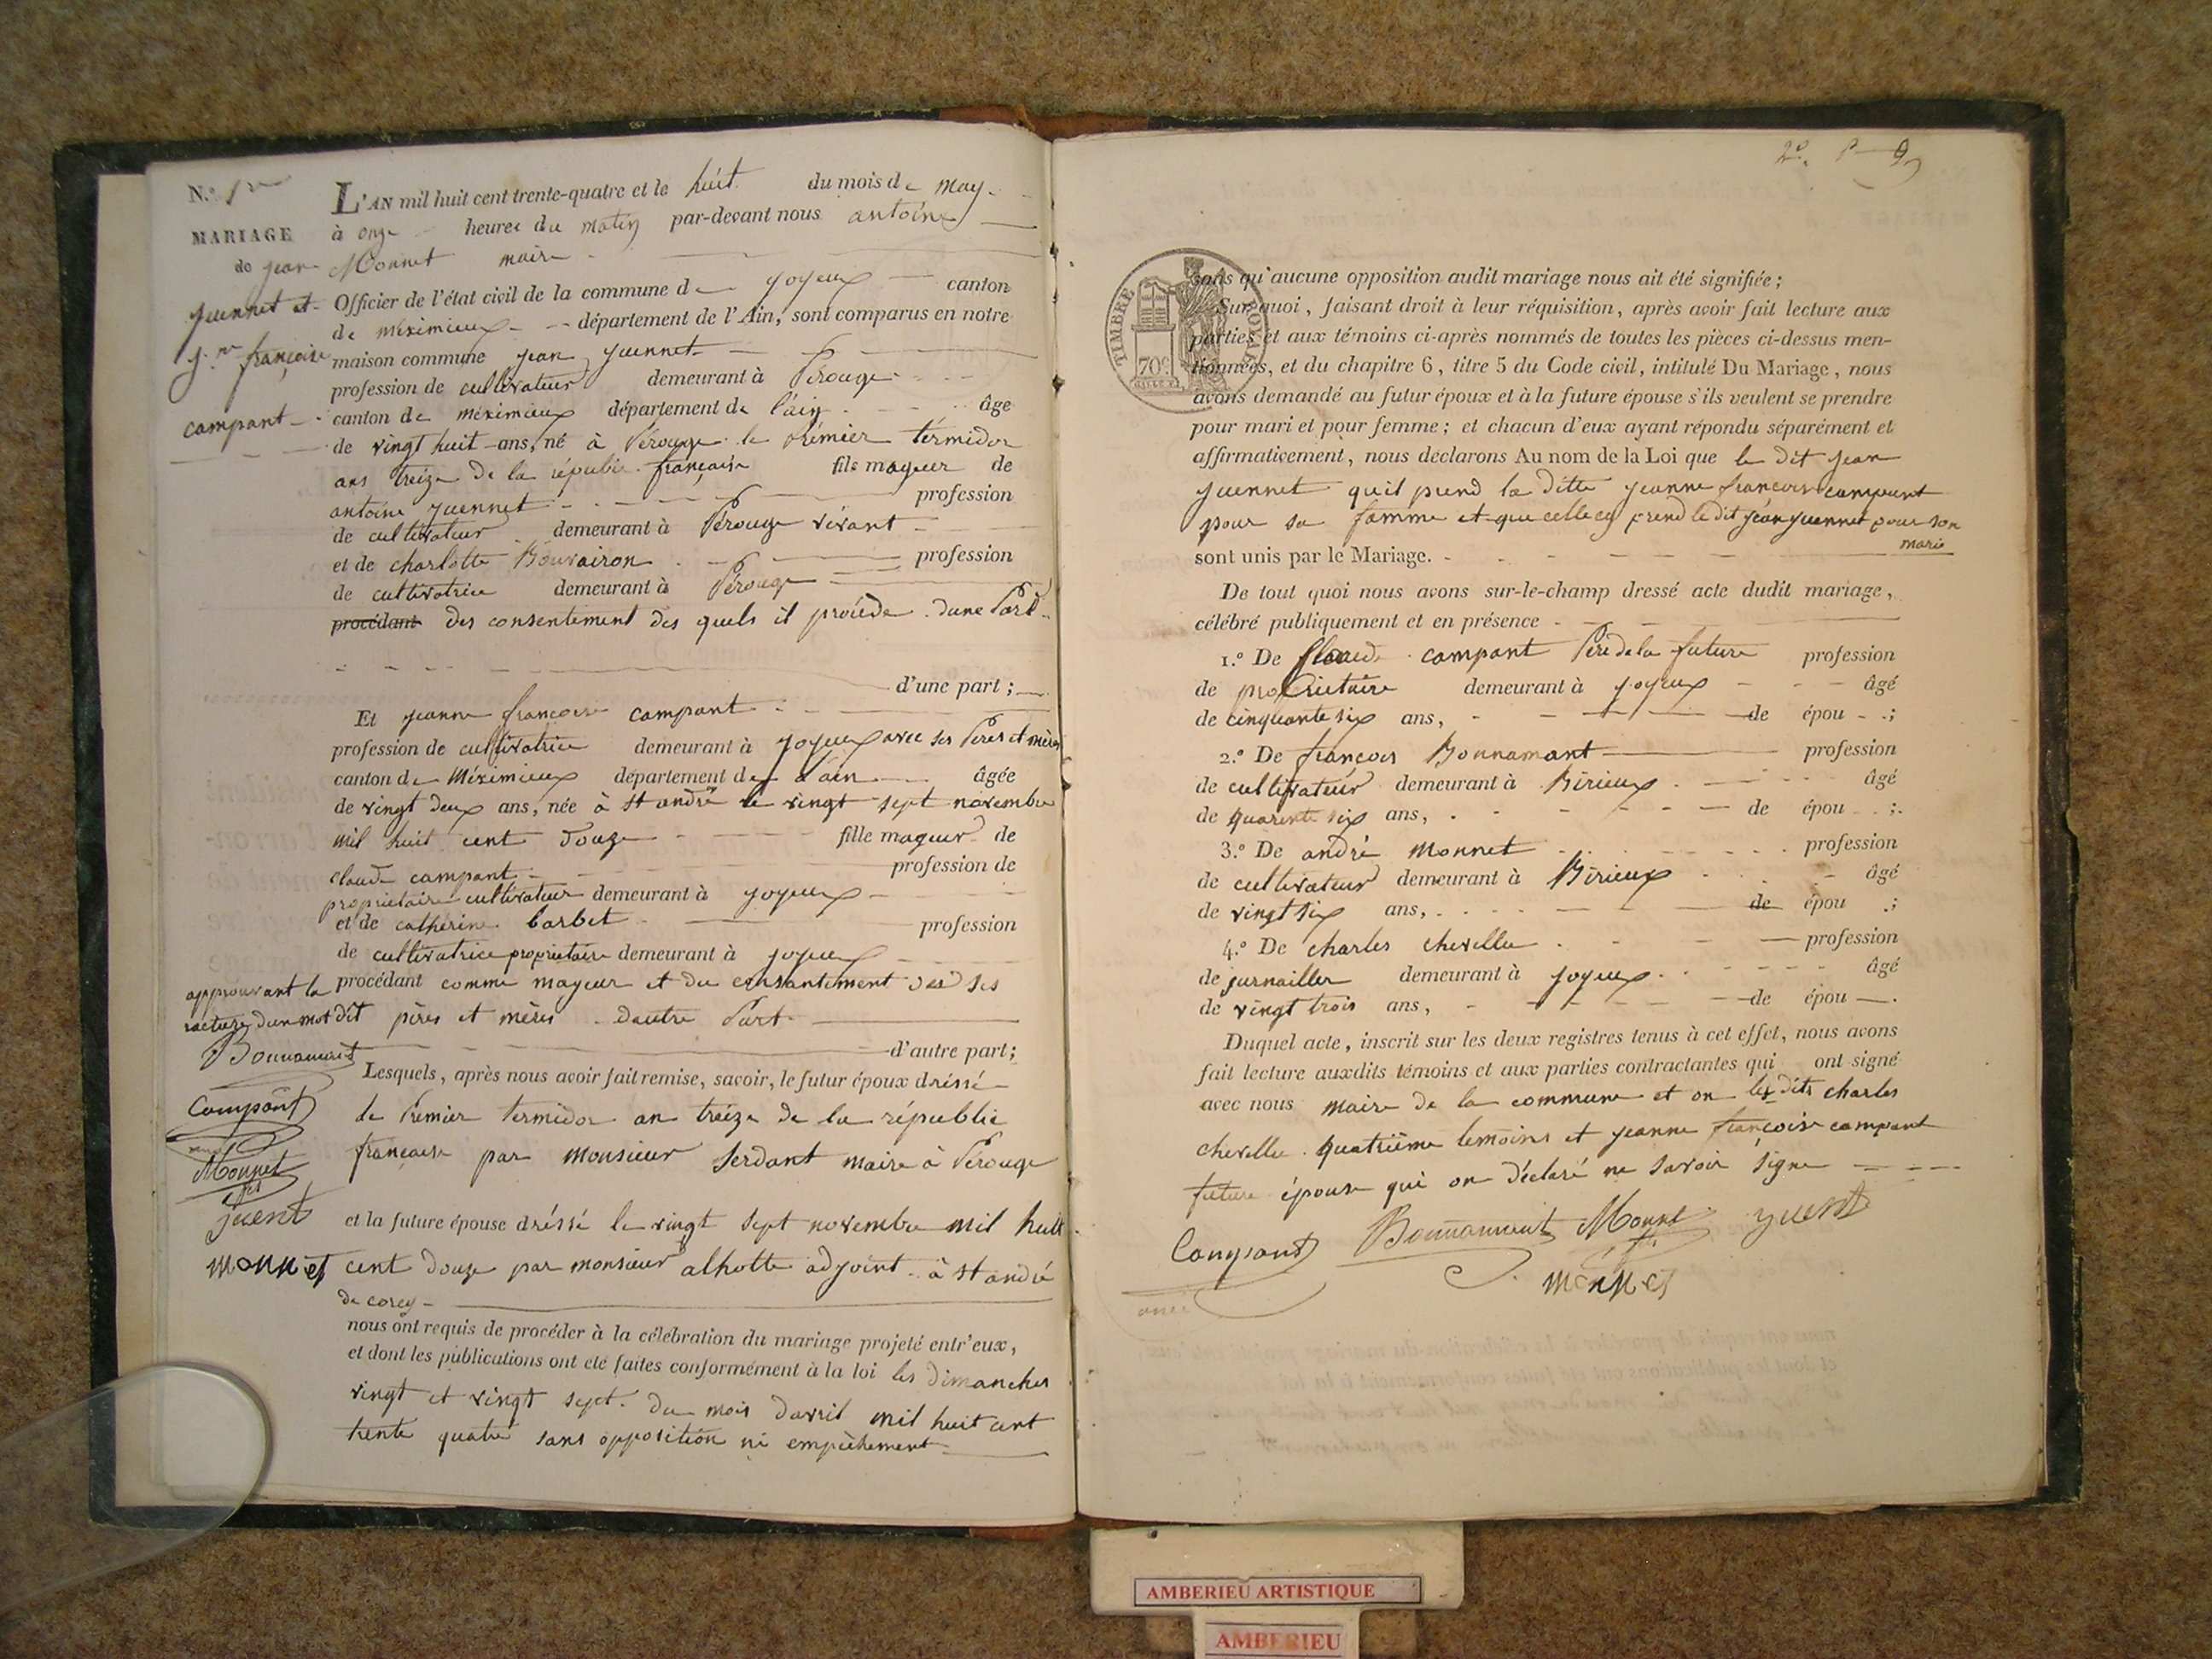 N.º 1er
MARIAGE
de jean
juennet et
j.ne françoise
campant
L'AN mil huit cent trente-quatre et le huit du mois de may
à onze heures du matin par-devant nous antoine
Monnet maire
Officier de l'état civil de la commune de joyeux canton
de méximieux département de l'Ain, sont comparus en notre
maison commune jean juennet
profession de cultivateur demeurant à Pérouge
canton de méximieux département de l'ain âge
de vingt huit ans, né à Pérouge le prémier termidor
ans treize de la républic française fils mayeur de
antoine juennet profession
de cultivateur demeurant à Pérouge vivant
et de charlotte Bouvairon profession
de cultivatrice demeurant à Pérouge
procédant des consentement des quels il procéde dune Part
d'une part ;
Et jeanne françoise campant
profession de cultivatrice demeurant à joyeux avec ses Peres et mères
canton de Méximieux département de l'ain âgée
de vingt deux ans, née à st andré le vingt sept novembre
mil huit cent douze fille mayeur de
claude campant profession de
propriétaire cultivateur demeurant à joyeux
et de catherine barbet profession
de cultivatrice propriétaire demeurant à joyeux
procédant comme mayeur et du consantement des ses
dit pères et mères dautre Part
d'autre part ;
approuvant la
rature dun mot
Bonnamant
Campant
Monnet
juent
monnet
Lesquels, après nous avoir fait remise, savoir, le futur époux dréssé
le Premier termidor an treize de la républic
française par monsieur serdant maire à Pérouge
et la future épouse dréssé le vingt sept novembre mil huit
cent douze par monsieur alhotte adjoint à st andré
de corcy
nous ont requis de procéder à la célébration du mariage projeté entr'eux,
et dont les publications ont été faites conformément à la loi les dimanches
vingt et vingt sept du mois davril mil huit cent
trente quatre sans opposition ni empêchement
2e.
TIMBRE ROYAL
70c
sans qu'aucune opposition audit mariage nous ait été signifiée ;
Sur quoi, faisant droit à leur réquisition, après avoir fait lecture aux
parties et aux témoins ci-après nommés de toutes les pièces ci-dessus men-
tionnées, et du chapitre 6, titre 5 du Code civil, intitulé Du Mariage, nous
avons demandé au futur époux et à la future épouse s'ils veulent se prendre
pour mari et pour femme ; et chacun d'eux ayant répondu séparément et
affirmativement, nous déclarons Au nom de la Loi que le dit jean
juennet quil prend la ditte jeanne françoise campant
pour sa famme et que celle cy prend le dit jean juennet pour son
marie
sont unis par le Mariage.
De tout quoi nous avons sur-le-champ dressé acte dudit mariage,
célébré publiquement et en présence
1.º De Claude campant Père de la future profession
de propriétaire demeurant à joyeux âgé
de cinquante six ans, de épou ;
2.º De françois Bonnamant profession
de cultivateur demeurant à Birieux âgé
de quarente six ans, de épou ;
3.º De andré monnet profession
de cultivateur demeurant à Birieux âgé
de vingt six ans, de épou ;
4.º De charles chevellu profession
de jurnailler demeurant à joyeux âgé
de vingt trois ans, de épou .
Duquel acte, inscrit sur les deux registres tenus à cet effet, nous avons
fait lecture auxdits témoins et aux parties contractantes qui ont signé
avec nous maire de la commune et on les dits charles
chevellu quatrième temoins et jeanne françoise campant
future épouse qui on déclaré ne savoir signe
Campant Bonnamant Monnet juent
monnet
AMBERIEU ARTISTIQUE
AMBERIEU